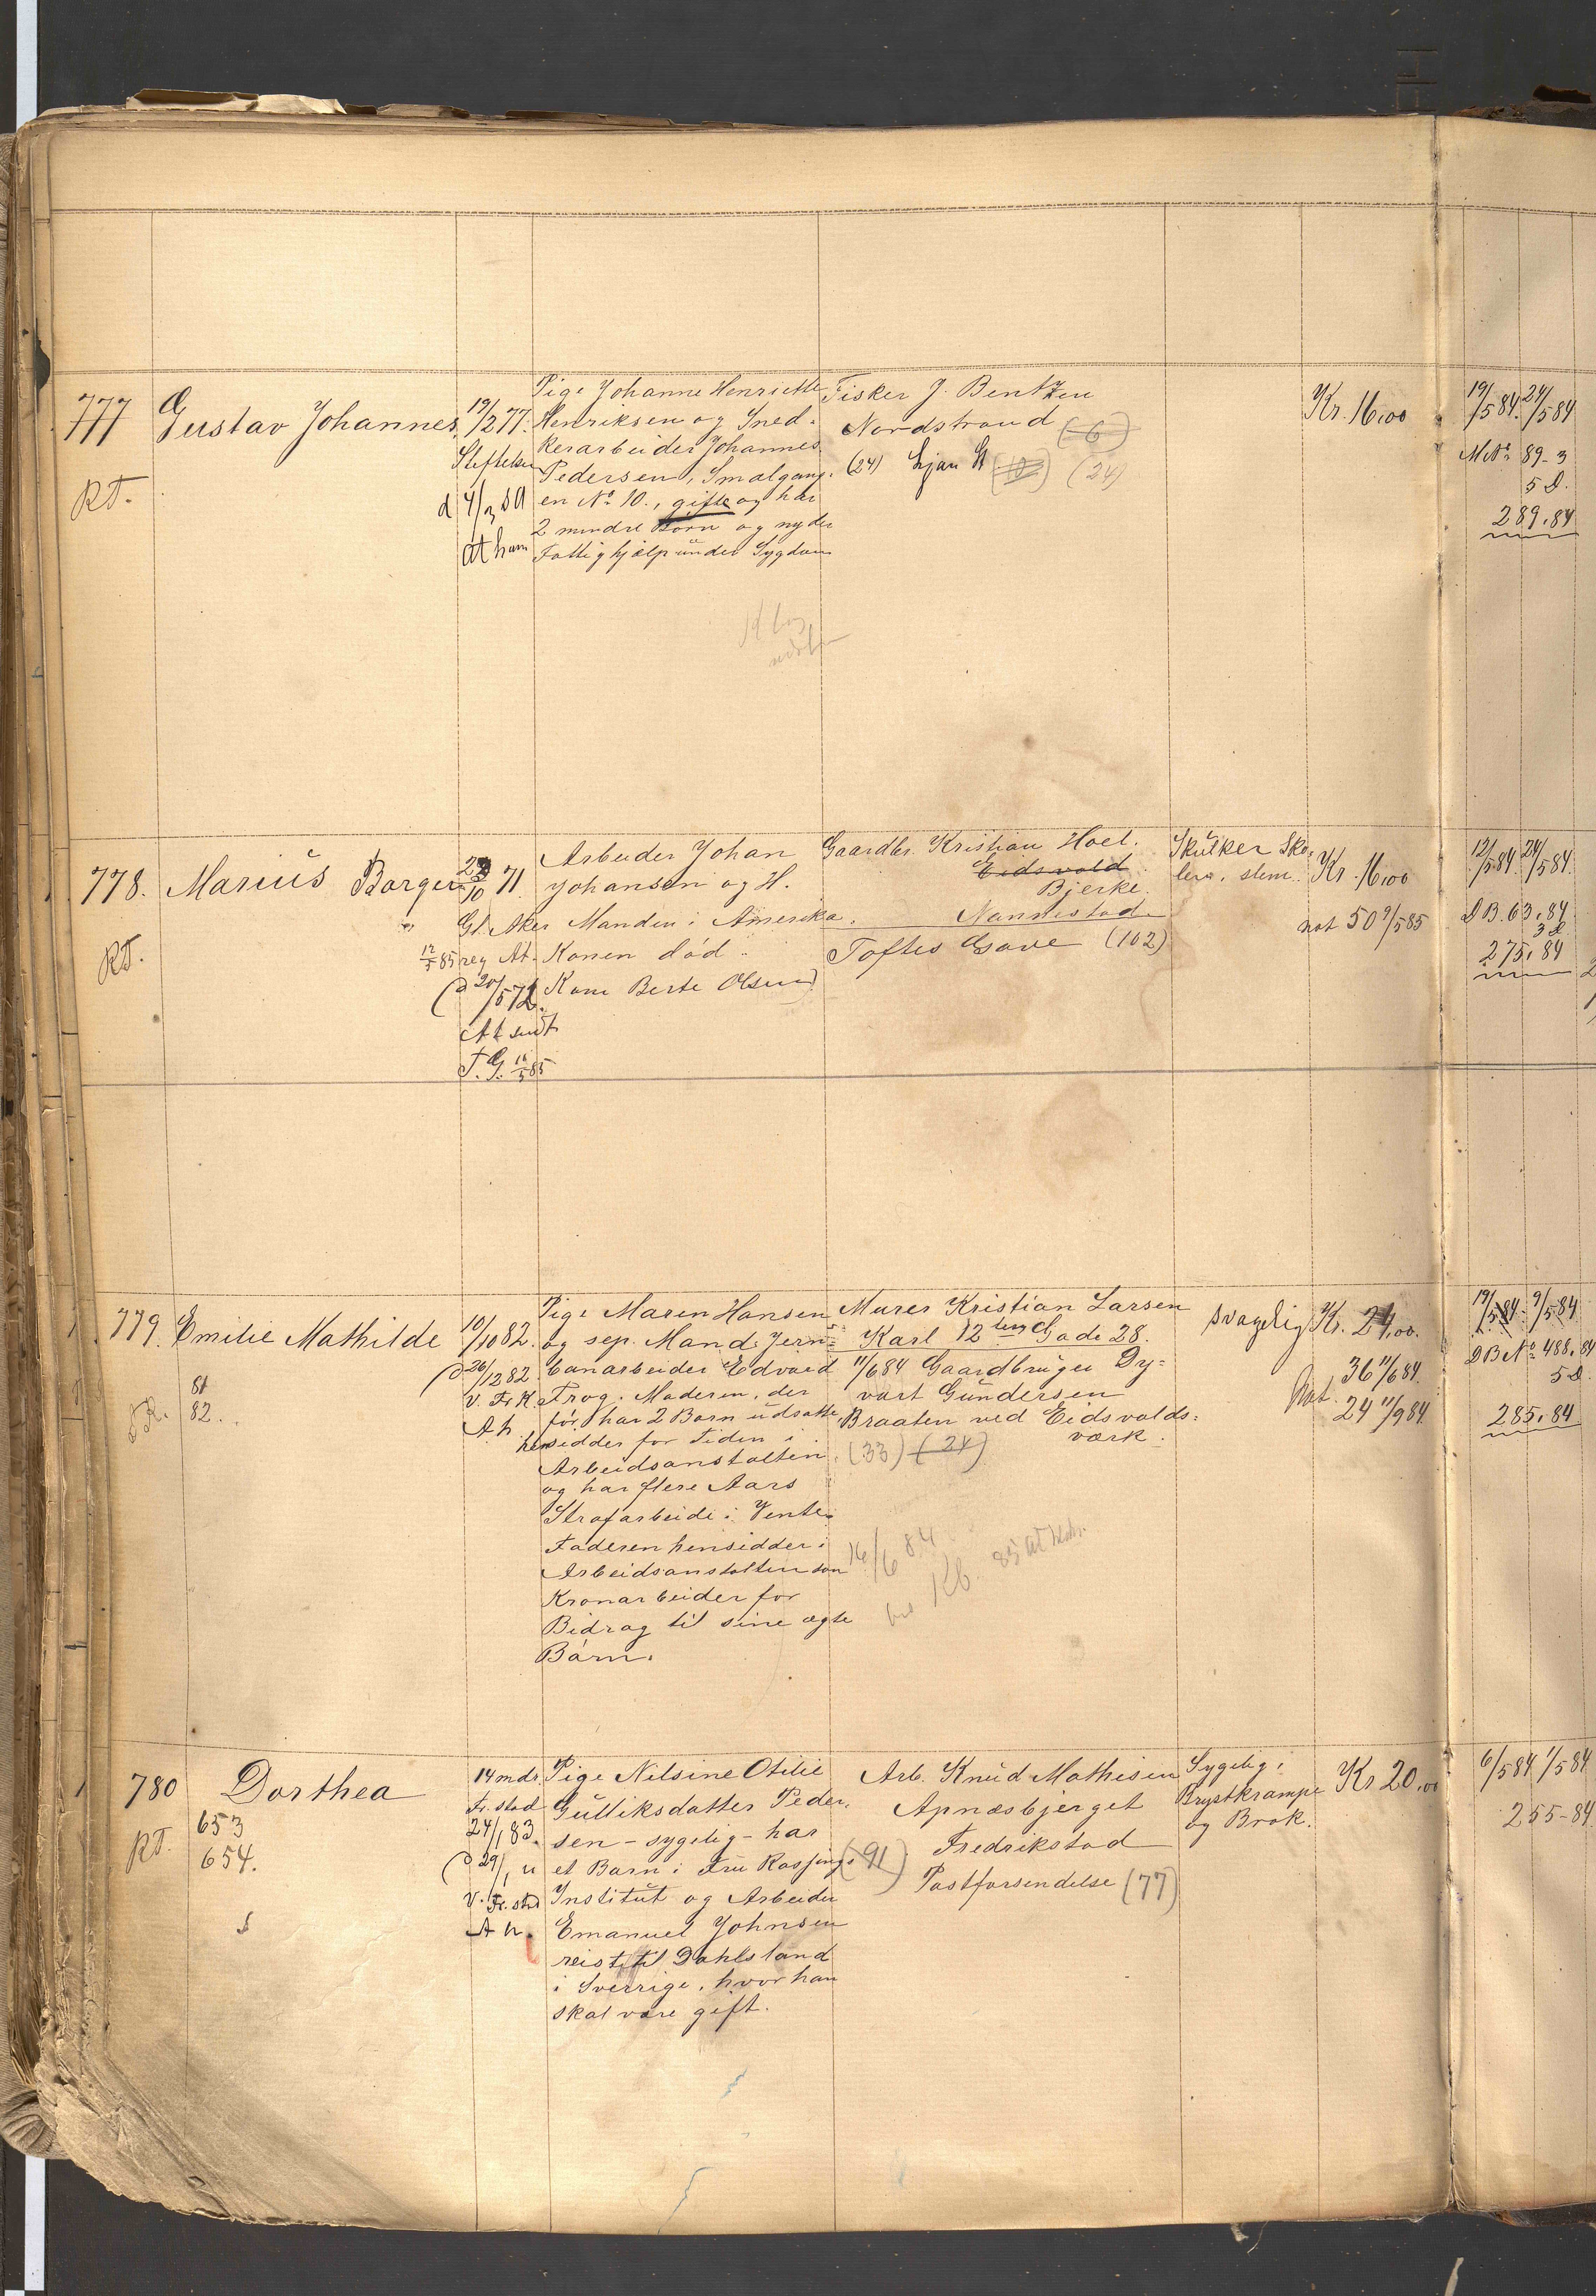 777
Gustav Johannes.
19/2 77.
Stiftelsen
d 4/3
At ham
RT.
Pige Johanne Henriette
Henriksen og Sned-
kerarbeider Johannes
Pedersen, Smalgang-
en No 10., gifte og har
2 mindre Børn og nyder
Fattighjælp under Sygdom
Fisker J. Bentzen
Nordstrand (6)
(24) Ljan St (10) (24)
Kr. 16,00
19/5 84. 24/5 84
M No 89-3
5 D.
289.84
778.
Marius Borger
10 71.
Gl. Aker
12/5 85 reg At.
(d 20/5 72.
At sendt
T. G. 11/5 85
RT.
Arbeider Johan
Johansen og H.
Manden i Amerika.
Konen død.
Kone Berte Olsen)
Gaardbr. Kristian Hoel.
Eidsvold
Bjerke.
Nannestad
Toftes Gave (102)
Skulker Sko-
len, slem.
Kr. 16,00
not 50 9/5 85
12/5 84. 24/5 84.
D B. 63.84
3 D
275.84
779.
Emilie Mathilde
81
82.
10/10 82.
(d 26/12 82.
v. Fr K.
A h.
Pige Maren Hansen
og sep. Mand, Jern-
banarbeider Edvard
Frog. Moderen, der
før har 2 Børn udsatte,
hensidder for Tiden i
Arbeidsanstalten
og har flere Aars
Strafarbeide i Vente.
Faderen hensidder i
Arbeidsanstalten som
Kronarbeider for
Bidrag til sine ægte
Børn.
Murer Kristian Larsen
Karl 12tes Gade 28.
11/6 84 Gaardbruger Dy-
vart Gundersen
Braaten ved Eidsvolds-
værk.
(33) (24)
16/6 84
Kb. 85
svagelig
Kr. 24,00.
36 11/6 84.
Not.
24 11/9 84
19/5 84. 9/5 84
D B No 488.84
5 D.
285.84
780
Dorthea
653
654.
RT.
14 mdr.
Fr. stad
24/1 83.
(d 29/1 u
v. Fr. stad
A h.
Pige Nilsine Otilie
Gulliksdatter Peder-
sen - sygelig - har
et Barn i Fru Rosfings
Institut og Arbeider
Emanuel Johnsen
reist til Dahlsland
i Sverrige, hvor han
skal være gift.
Arb. Knud Mathisen
Apnæsbjerget
Fredrikstad
(91)
Postforsendelse (77)
Sygelig:
Brystkrampe
og Brok.
Kr 20,00
6/5 84 1/5 84
255-84